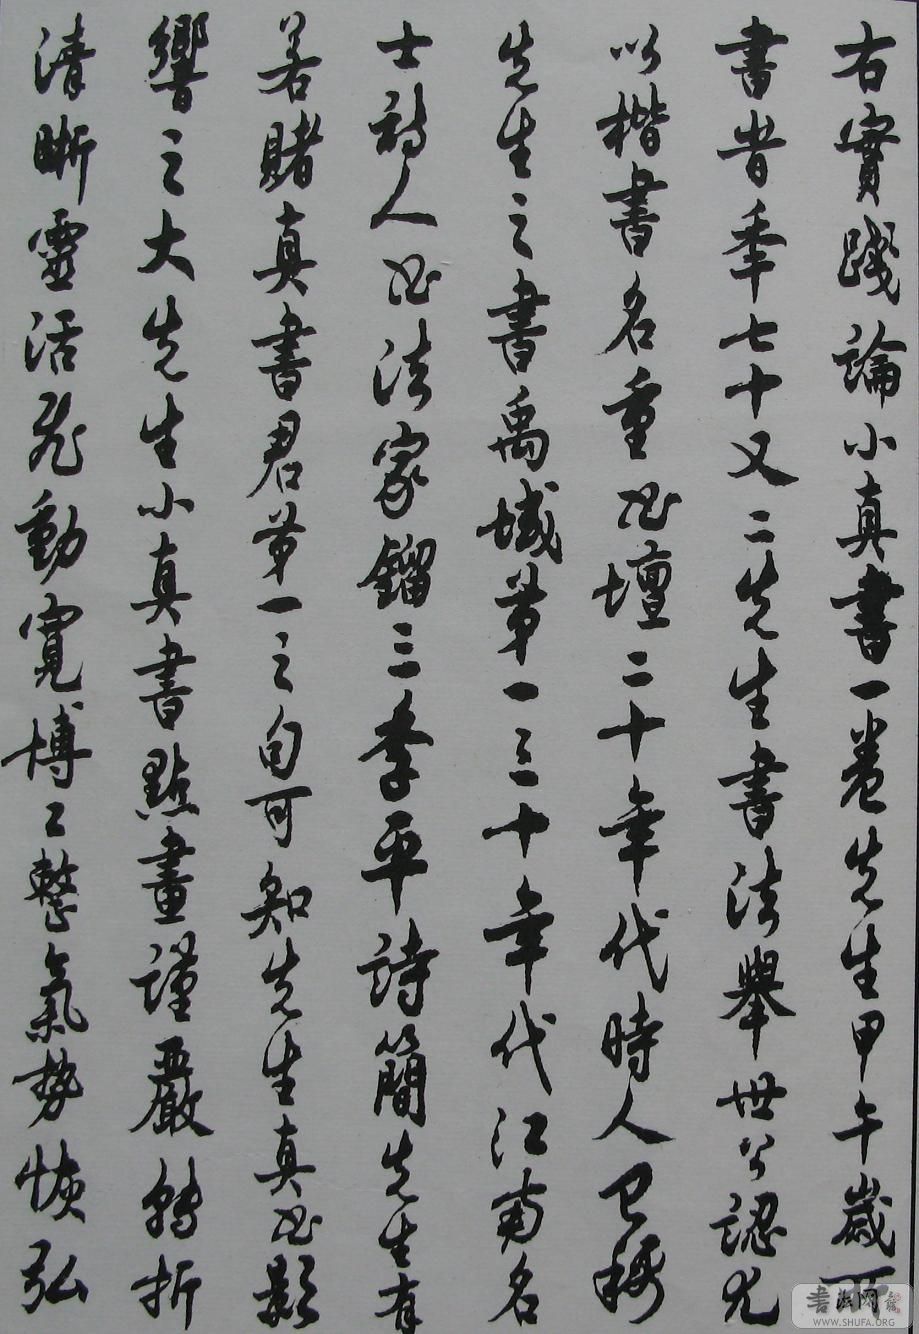 右實踐論小真書一卷先生甲午歲所
書昔年七十又二先生書法舉世公認尤
以楷書名重书壇二十年代時人已稱
先生之書禹域第一三十年代江南名
士詩人书法家鎦三李平詩簡先生有
若賭真書君第一之句可知先生真书影
響之大先生小真書點畫謹嚴轉折
清晰靈活飛動寬博工整氣勢恢弘
書法网
WWW.SHUFA.ORG